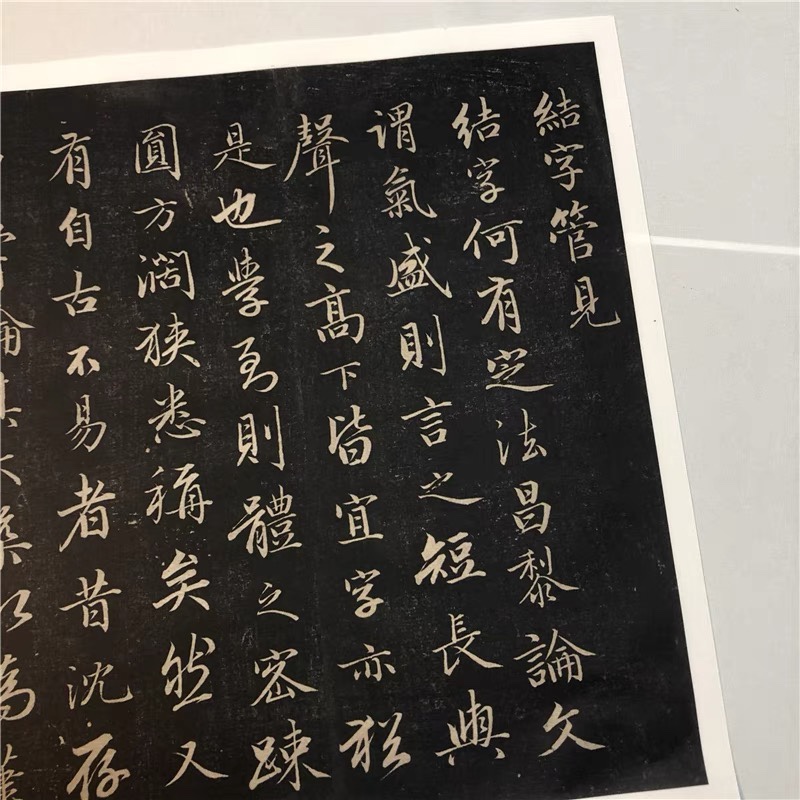 結字管見
結字何有定法昌黎論文
謂氣盛則言之短長與
聲之高下皆宜字亦猶
是也學到則體之密疎
圓方濶狹悉稱矣然又
有自古不易者昔沈存
論其大